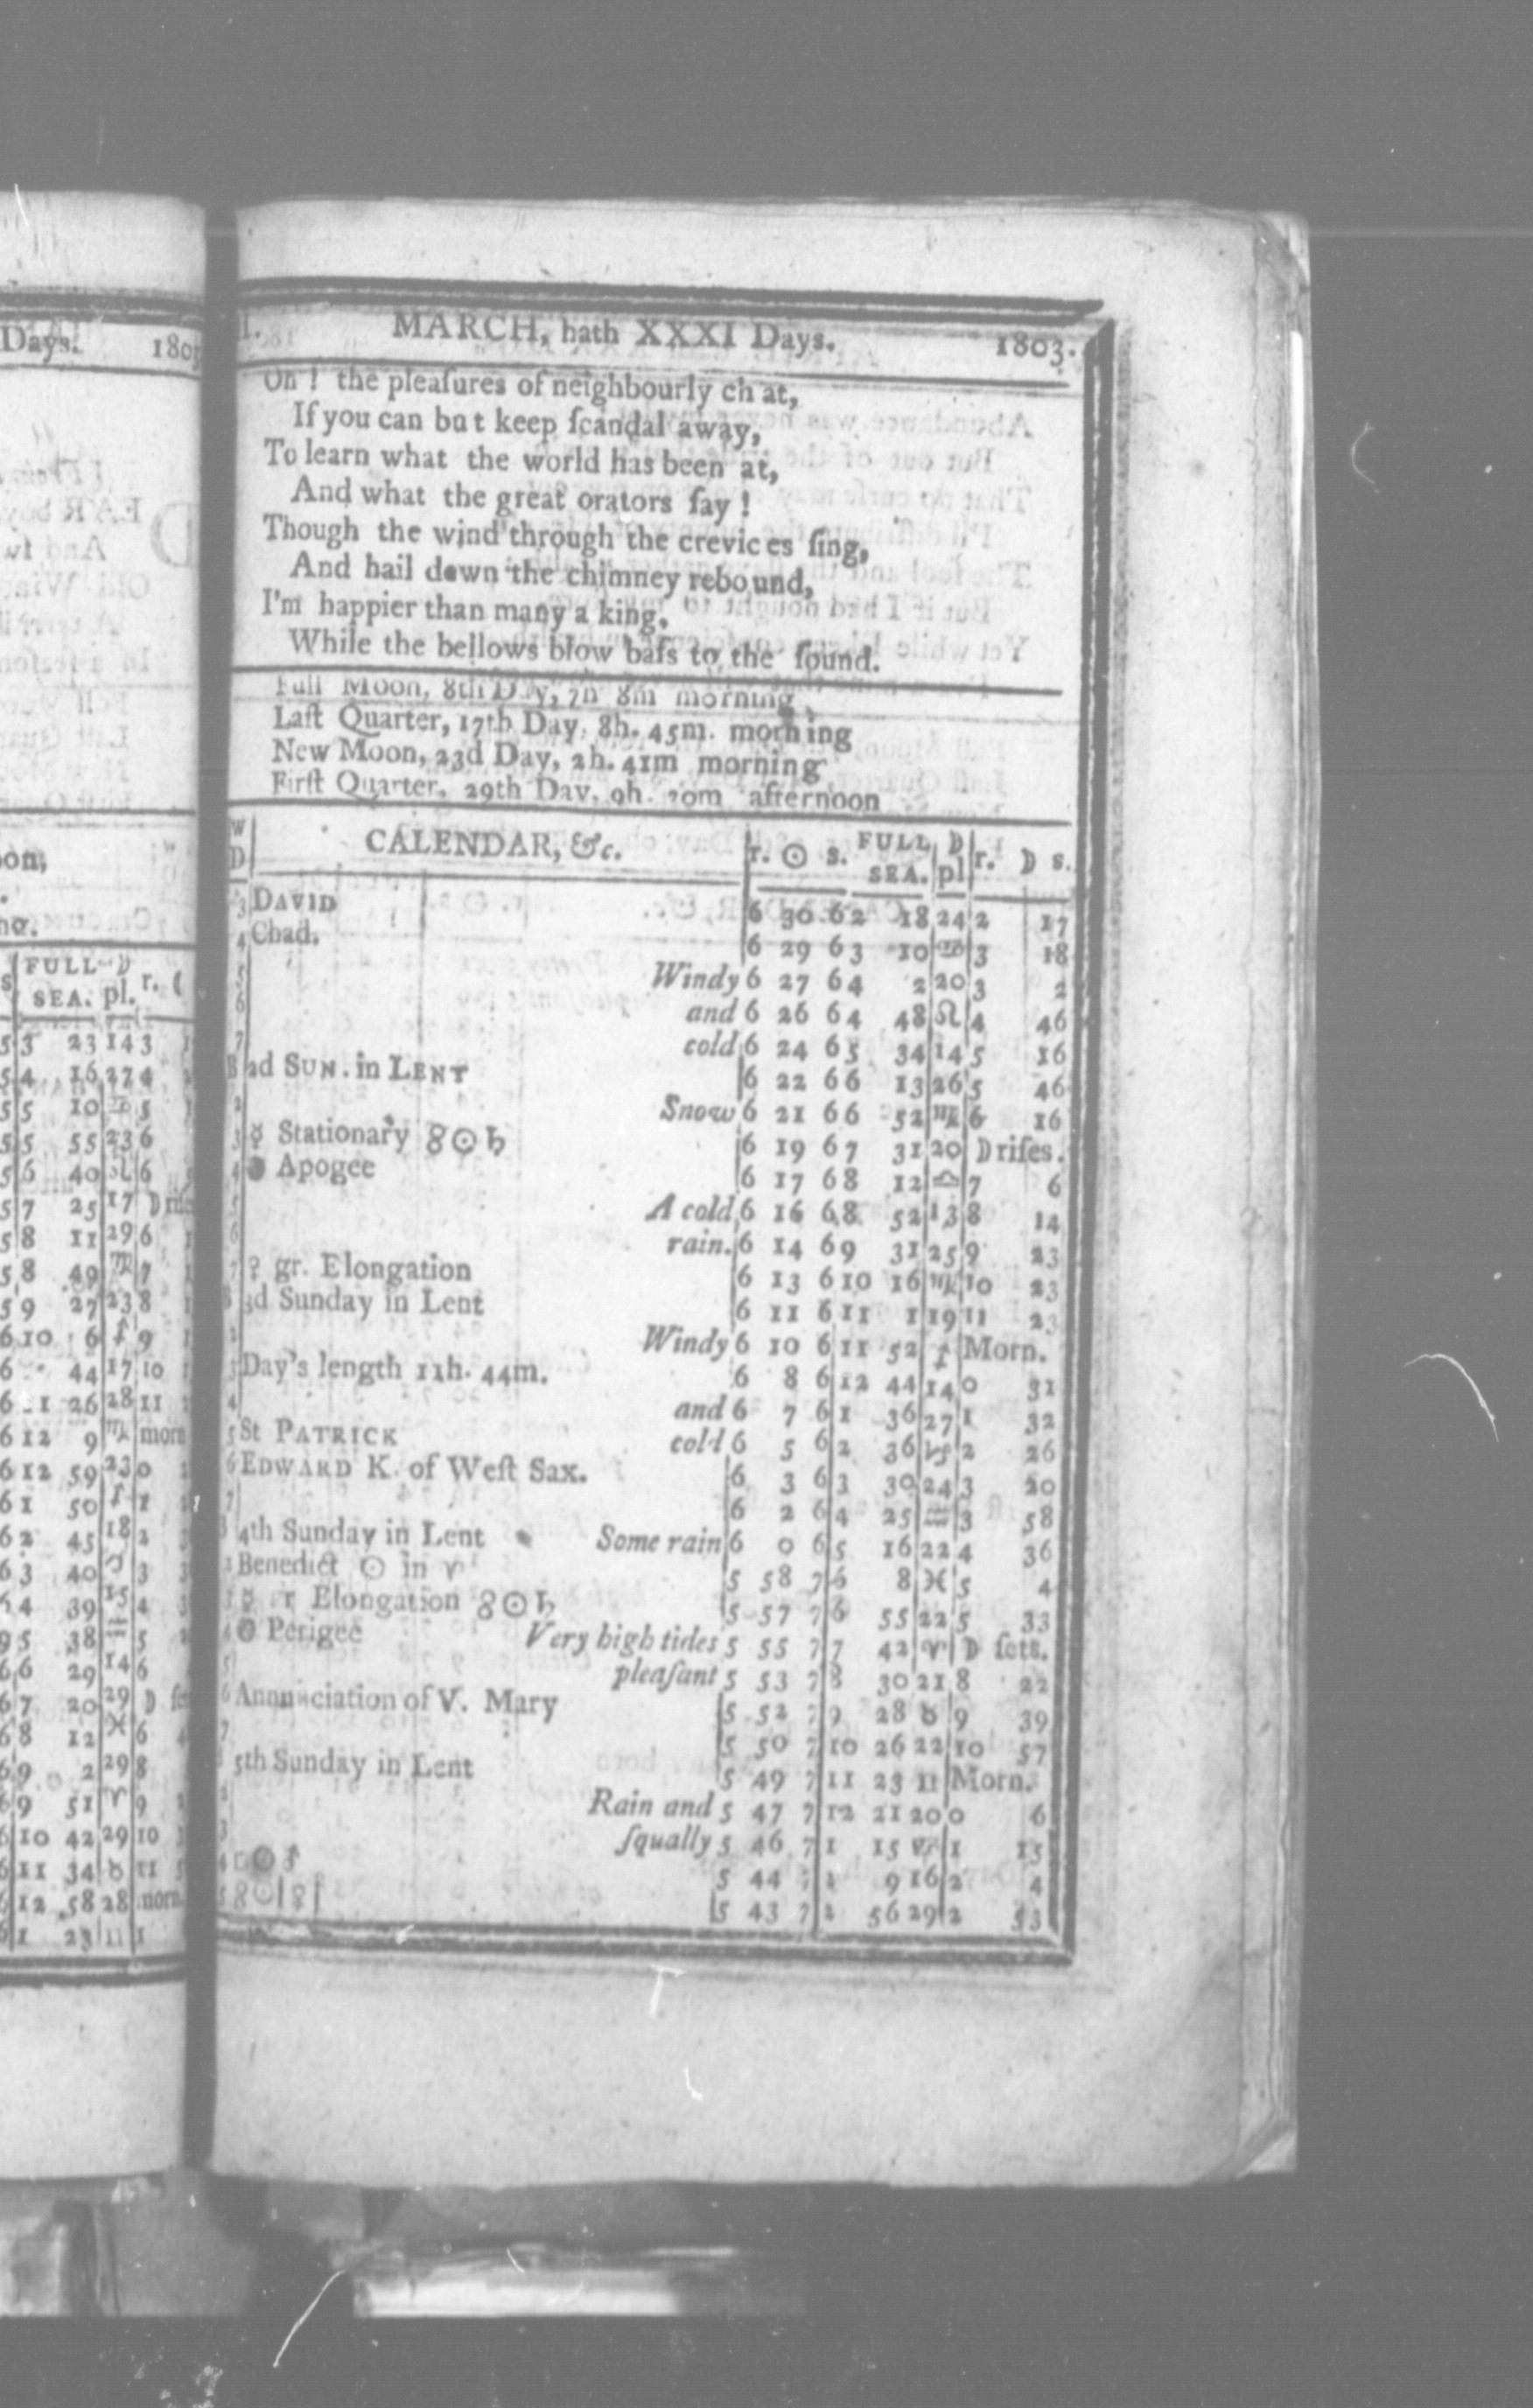 Days. 180
on,
FULL D
s SEA. pl. r. (
5 3 23 14 3
5 4 16 27 4
5 5 10 ♋ 5
5 5 55 23 6
5 6 40 ♌ 6
5 7 25 17 D rise
5 8 11 29 6
5 8 49 ♍ 7
5 9 27 23 8
6 10 6 9
6 44 17 10
6 1 26 28 11
6 12 9 ♏ morn
6 12 59 23 0
6 1 50 1
6 2 45 18 2
6 3 40 3
6 4 39 15 4
5 38 ♒ 5
6 6 29 14 6
6 7 20 29 D set
6 8 12 ♓ 6
6 9 2 29 8
6 9 51 ♈ 9
6 10 42 29 10
6 11 34 ♉ 11
6 12 58 28 morn.
6 1 23 11 1
I. MARCH, hath XXXI Days. 1803.
Oh ! the pleaſures of neighbourly ch at,
If you can but keep ſcandal away,
To learn what the world has been at,
And what the great orators ſay !
Though the wind through the crevic es ſing,
And hail down the chimney rebound,
I'm happier than many a king,
While the bellows blow baſs to the ſound.
Full Moon, 8th Day, 7h 8m morning
Laſt Quarter, 17th Day, 8h. 45m. morning
New Moon, 23d Day, 2h. 41m morning
Firſt Quarter, 29th Day, 9h. 20m afternoon
W D CALENDAR, &c. r. ☉ s. FULL SEA. D pl r. D s.
3 DAVID 6 30 6 2 18 24 2 17
4 Chad. 6 29 6 3 10 ♋ 3 18
5 Windy 6 27 6 4 2 20 3 2
6 and 6 26 6 4 48 ♌ 4 46
7 cold 6 24 6 5 34 14 5 16
B 2d SUN. in LENT 6 22 6 6 13 26 5 46
2 Snow 6 21 6 6 52 ♍ 6 16
3 ☿ Stationary 8☉♄ 6 19 6 7 31 20 D riſes.
4 Apogee 6 17 6 8 12 ♎ 7 6
5 A cold 6 16 6 8 52 13 8 14
6 rain. 6 14 6 9 31 25 9 23
7 ♀ gr. Elongation 6 13 6 10 16 ♏ 10 23
B 3d Sunday in Lent 6 11 6 11 1 19 11 23
2 Windy 6 10 6 11 52 ♐ Morn.
3 Day's length 11h. 44m. 6 8 6 12 44 14 0 31
4 and 6 7 6 1 36 27 1 32
5 St PATRICK cold 6 5 6 2 36 ♑ 2 26
6 EDWARD K. of Weſt Sax. 6 3 6 3 30 24 3 20
7 6 2 6 4 25 ♒ 3 58
B 4th Sunday in Lent Some rain 6 0 6 5 16 22 4 36
2 Benedict ☉ in ♈ 5 58 7 6 8 ♓ 5 4
3 ☿ r Elongation 8☉♄ 5 57 7 6 55 22 5 33
4 Perigee Very high tides 5 55 7 7 42 ♈ D ſets.
5 pleaſant 5 53 7 8 30 21 8 22
6 Annunciation of V. Mary 5 52 7 9 28 ♉ 9 39
7 5 50 7 10 26 22 10 57
5th Sunday in Lent 5 49 7 11 23 11 Morn.
2 Rain and 5 47 7 12 21 20 0 6
3 ſqually 5 46 7 1 15 1 15
4 □☉ 5 44 7 2 9 16 2 4
5 8☉ ♀ 5 43 7 2 56 29 2 53